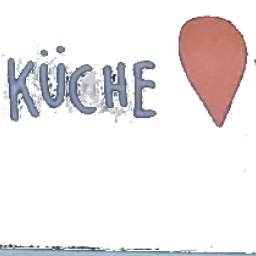 KÜCHE